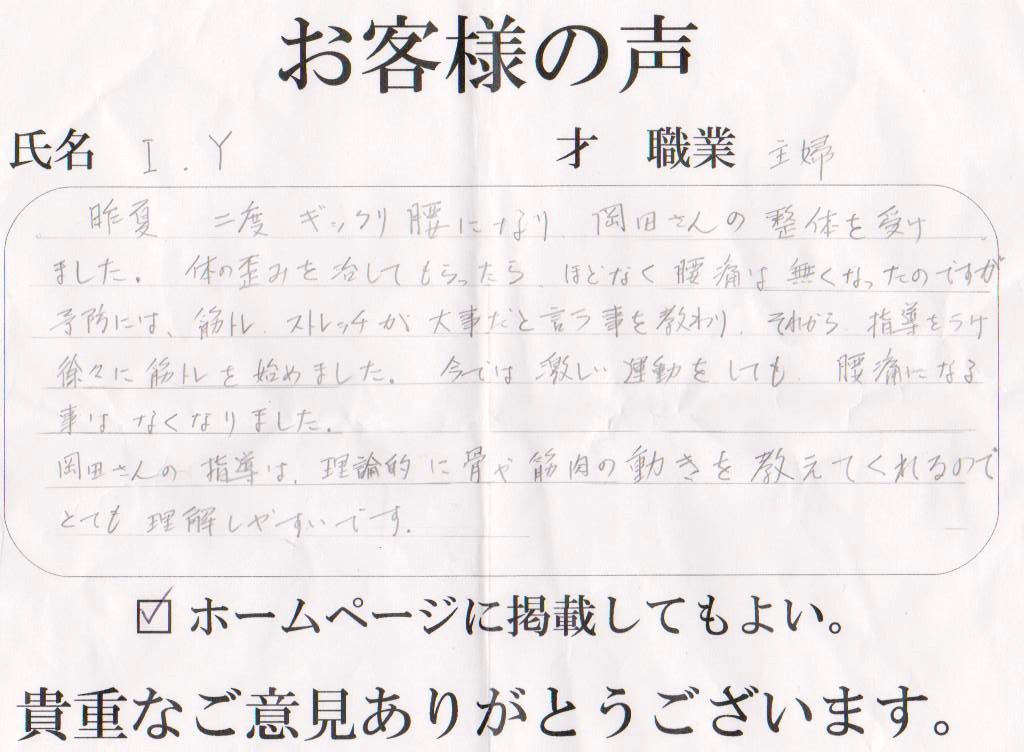 お客様の声
氏名 I.Y 才 職業 主婦
昨夏 二度 ギックリ腰になり、岡田さんの整体を受け
ました。体の歪みを治してもらったら、ほどなく腰痛は無くなったのですが
予防には、筋トレ、ストレッチが大事だと言う事を教わり、それから、指導をうけ
徐々に筋トレを始めました。今では激しい運動をしても、腰痛になる
事はなくなりました。
岡田さんの指導は、理論的に骨や筋肉の動きを教えてくれるので
とても理解しやすいです。
☑ ホームページに掲載してもよい。
貴重なご意見ありがとうございます。